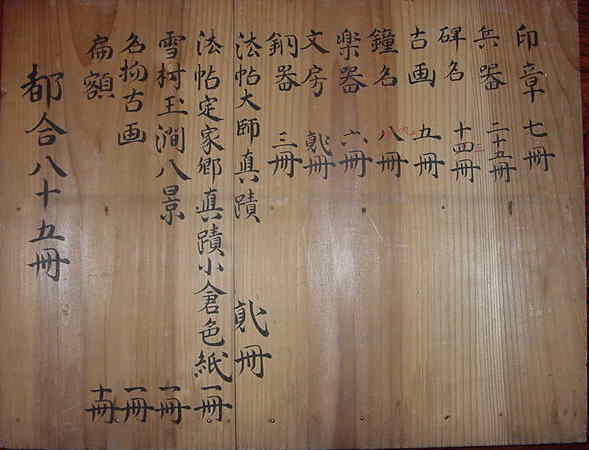 印章 七冊
兵器 二十五冊
碑名 十四冊
古画 五冊
鐘名 八冊
楽器 六冊
文房 貮冊
銅器 三冊
法帖大師真蹟 貮冊
法帖定家郷真蹟小倉色紙 一冊
雪村玉澗八景 一冊
名物古画 一冊
扁額 十冊
都合八十五冊